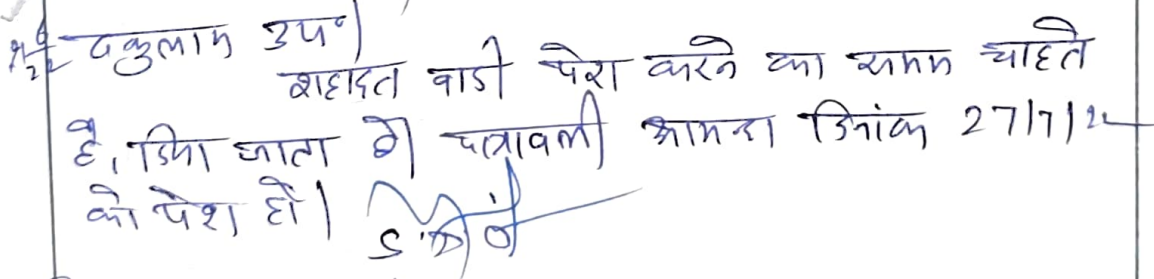 वकुलाम उप०।
शहादत वादी पेश करने का समय चाहते
है, दिया जाता है। पत्रावली आयन्दा दिनांक 27/7/22
को पेश हो।